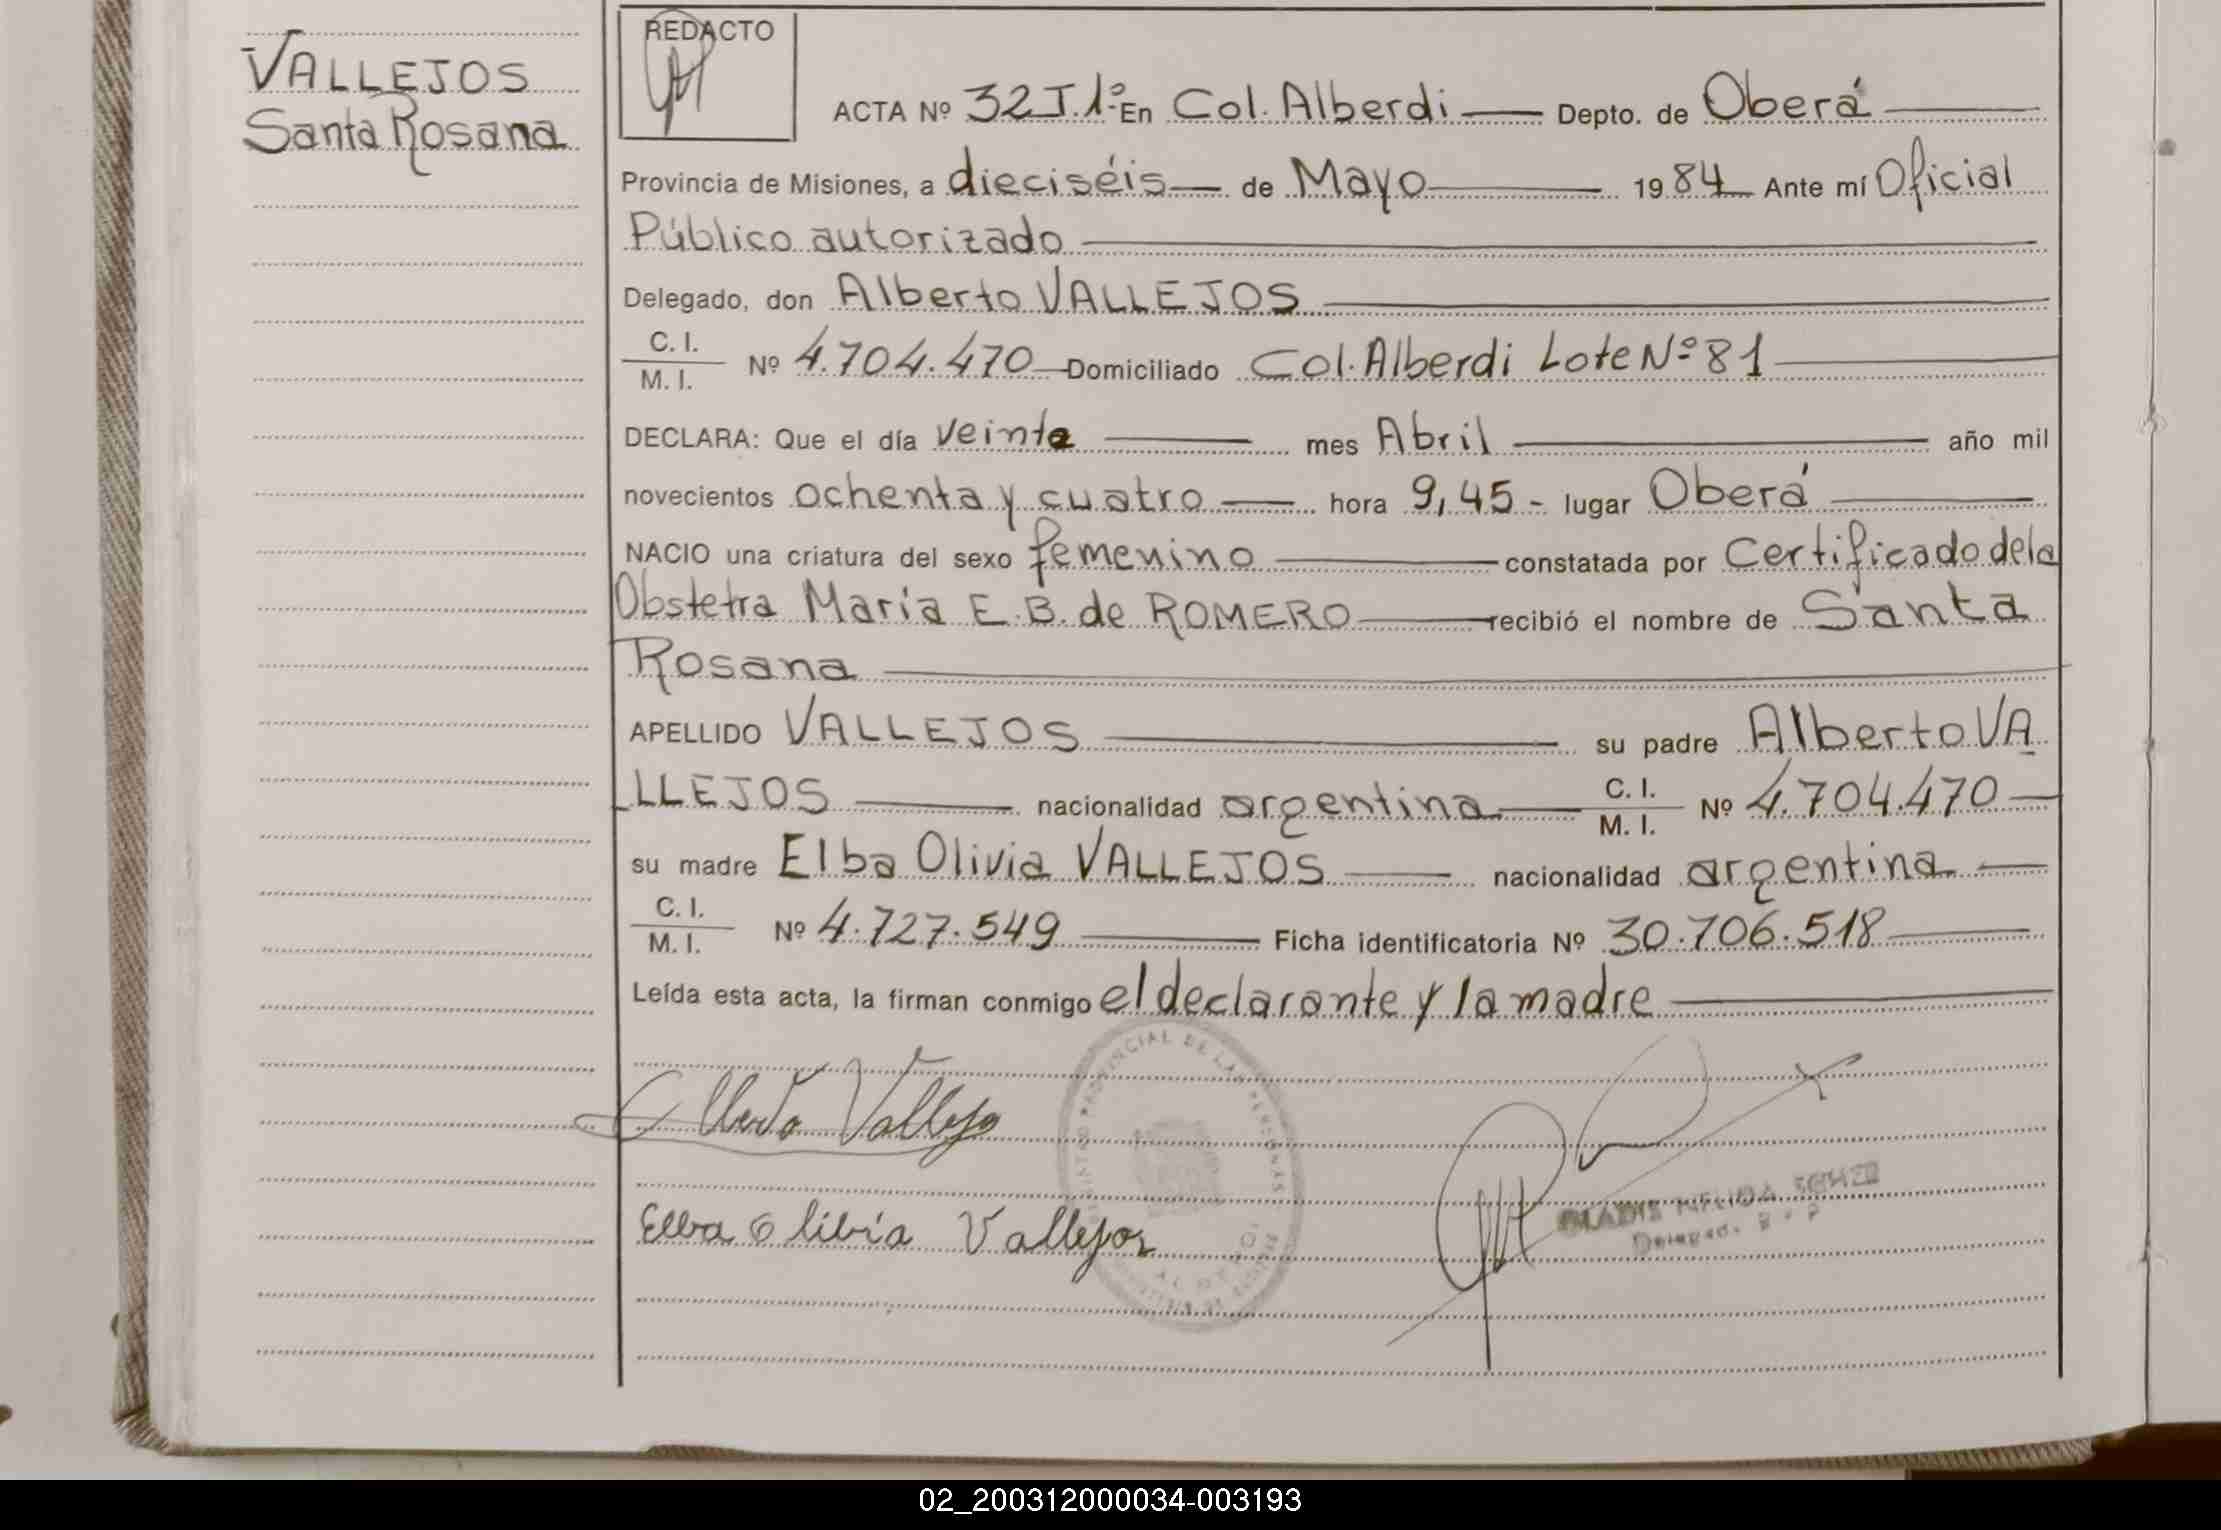 VALLEJOS
Santa Rosana
REDACTO
ACTA Nº 32 T.1º En Col. Alberdi Depto. de Oberá
Provincia de Misiones, a dieciséis de Mayo 1984 Ante mí Oficial
Público autorizado
Delegado, don Alberto VALLEJOS
C. I.
M. I. Nº 4.704.470 Domiciliado Col. Alberdi Lote Nº 81
DECLARA: Que el día veinte mes Abril año mil
novecientos ochenta y cuatro hora 9,45 - lugar Oberá
NACIO una criatura del sexo femenino constatada por Certificado de la
Obstetra María E. B. de ROMERO recibió el nombre de Santa
Rosana
APELLIDO VALLEJOS su padre Alberto VA
LLEJOS nacionalidad argentina C. I. M. I. Nº 4.704.470
su madre Elba Olivia VALLEJOS nacionalidad argentina
C. I.
M. I. Nº 4.727.549 Ficha identificatoria Nº 30.706.518
Leída esta acta, la firman conmigo el declarante y la madre
Alberto Vallejo
Elba Olibia Vallejos
PROVINCIAL DE LAS PERSONAS
GLADIS
02_200312000034-003193